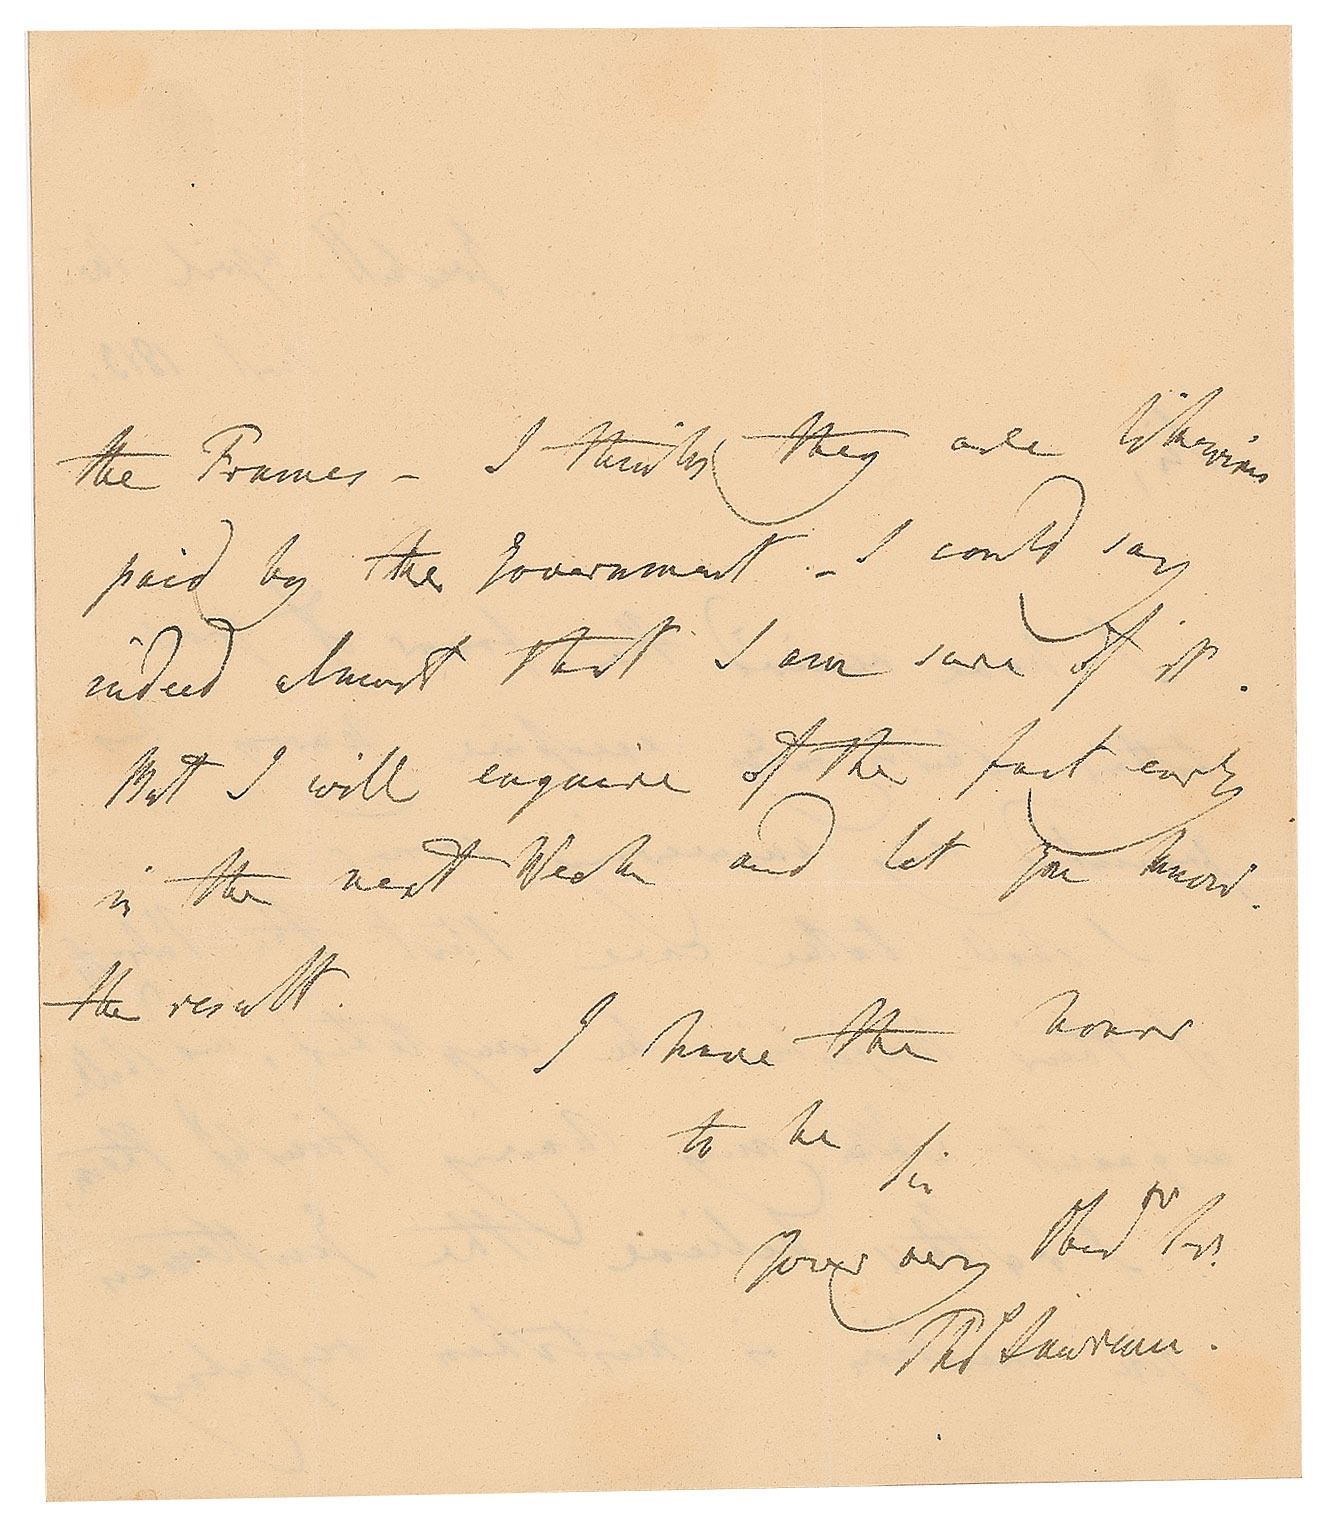 the Frames – I think they are likewise
paid by the Government – I could say
indeed almost that I am sure of it.
But I will enquire of the fact early
in the next Week and let you know.
the result.
I have the honor
to be Sir
Your very Obed.
Thos Lawrence.